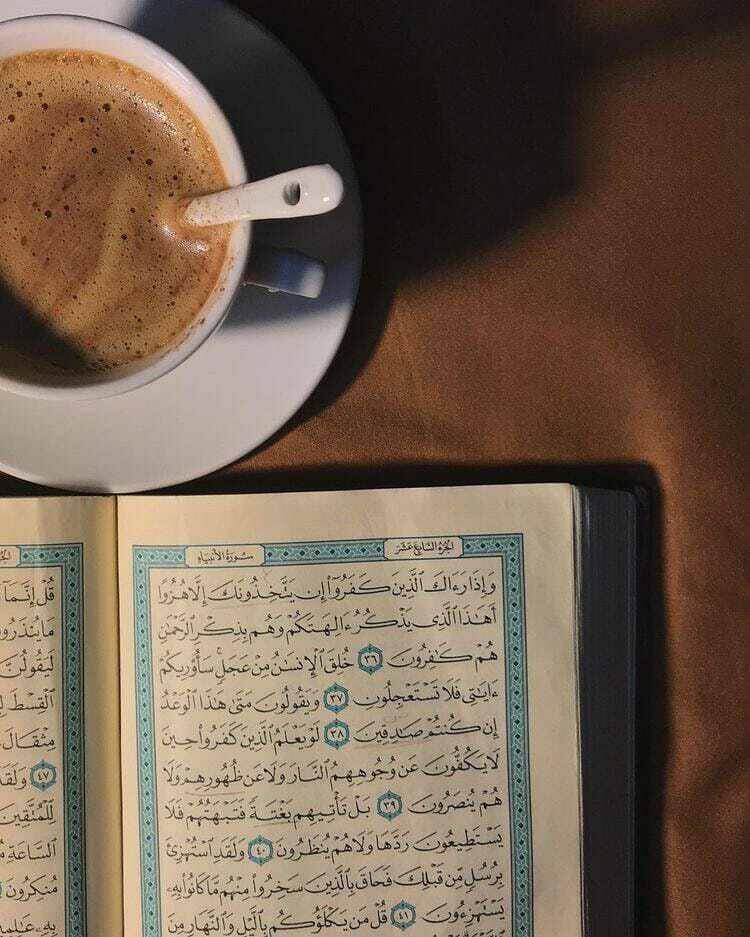 الجزء السابع عشر
سورة الأنبياء
وَإِذَا رَءَاكَ ٱلَّذِينَ كَفَرُوٓا۟ إِن يَتَّخِذُونَكَ إِلَّا هُزُوًا
أَهَٰذَا ٱلَّذِى يَذْكُرُ ءَالِهَتَكُمْ وَهُم بِذِكْرِ ٱلرَّحْمَٰنِ
هُمْ كَٰفِرُونَ ٣٦ خُلِقَ ٱلْإِنسَٰنُ مِنْ عَجَلٍ سَأُو۟رِيكُمْ
ءَايَٰتِى فَلَا تَسْتَعْجِلُونِ ٣٧ وَيَقُولُونَ مَتَىٰ هَٰذَا ٱلْوَعْدُ
إِن كُنتُمْ صَٰدِقِينَ ٣٨ لَوْ يَعْلَمُ ٱلَّذِينَ كَفَرُوا۟ حِينَ
لَا يَكُفُّونَ عَن وُجُوهِهِمُ ٱلنَّارَ وَلَا عَن ظُهُورِهِمْ وَلَا
هُمْ يُنصَرُونَ ٣٩ بَلْ تَأْتِيهِم بَغْتَةً فَتَبْهَتُهُمْ فَلَا
يَسْتَطِيعُونَ رَدَّهَا وَلَا هُمْ يُنظَرُونَ ٤٠ وَلَقَدِ ٱسْتُهْزِئَ
بِرُسُلٍ مِّن قَبْلِكَ فَحَاقَ بِٱلَّذِينَ سَخِرُوا۟ مِنْهُم مَّا كَانُوا۟ بِهِۦ
يَسْتَهْزِءُونَ ٤١ قُلْ مَن يَكْلَؤُكُم بِٱلَّيْلِ وَٱلنَّهَارِ مِنَ
قُلْ إِنَّمَآ
مَا يُنذَرُونَ
لَيَقُولُنَّ
ٱلْقِسْطَ
مِثْقَالَ
٤٧ وَلَقَدْ
لِّلْمُتَّقِينَ
ٱلسَّاعَةِ
مُنكِرُونَ
بِهِۦ عَٰلِمِينَ